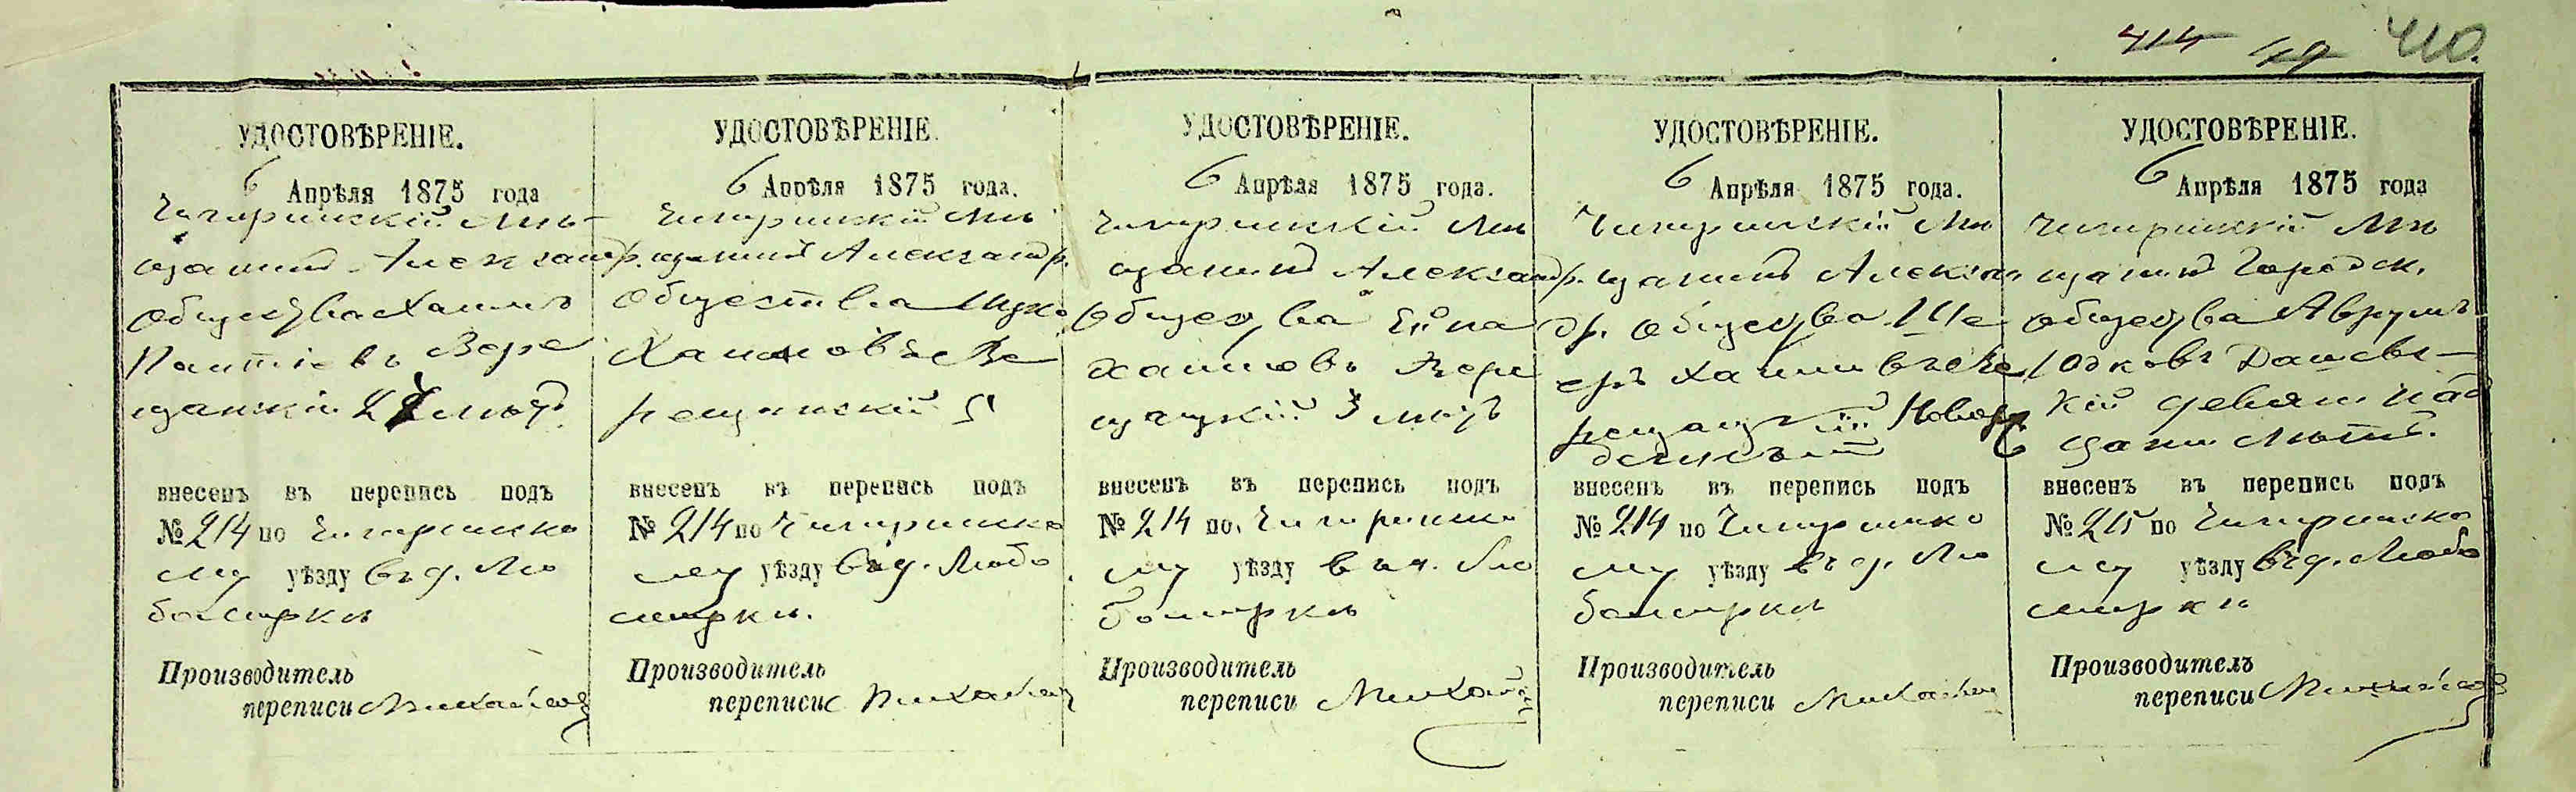 414 410.
УДОСТОВѢРЕНІЕ.
6 Апрѣля 1875 года
Чигиринскій Мѣ-
щанинъ Александр.
Общества Хаимъ
Верe
щацкій лѣтъ
внесенъ въ перепись подъ
№ 214 по Чигиринско
му уѣзду въ д. Лю
бомирки
Производитель
переписи Михайлов
УДОСТОВѢРЕНІЕ.
6 Апрѣля 1875 года.
Чигиринскій Мѣ
щанинъ Александр.
Общества Ицко
Хаимовъ Ве
рещацкій
внесенъ въ перепись подъ
№ 214 по Чигиринско
му уѣзду въ д. Любо
мирки.
Производитель
переписи Михайлов
УДОСТОВѢРЕНІЕ.
6 Апрѣля 1875 года.
Чигиринскій Мѣ
щанинъ Александр.
Общества
Хаимовъ Вере
щацкій 3 лѣтъ
внесенъ въ перепись подъ
№ 214 по. Чигиринско
му уѣзду въ д. Лю
бомирки
Производитель
переписи Михайлов
УДОСТОВѢРЕНІЕ.
6 Апрѣля 1875 года.
Чигиринскій Мѣ
щанинъ Алексан
др. Общества Ше
Хаимовъ Ве
рещацкій Новоро
внесенъ въ перепись подъ
№ 214 по Чигиринско
му уѣзду въ д. Лю
бомирки
Производитель
переписи Михайлов
УДОСТОВѢРЕНІЕ.
6 Апрѣля 1875 года
Чигиринскій Мѣ
щанинъ Городск.
общества Аврумъ
Юдковъ Дашевс-
кій девятнад
цати лѣтъ.
внесенъ въ перепись подъ
№ 215 по Чигиринско
му уѣзду въ д. Любо
мирки
Производитель
переписи Михайлов